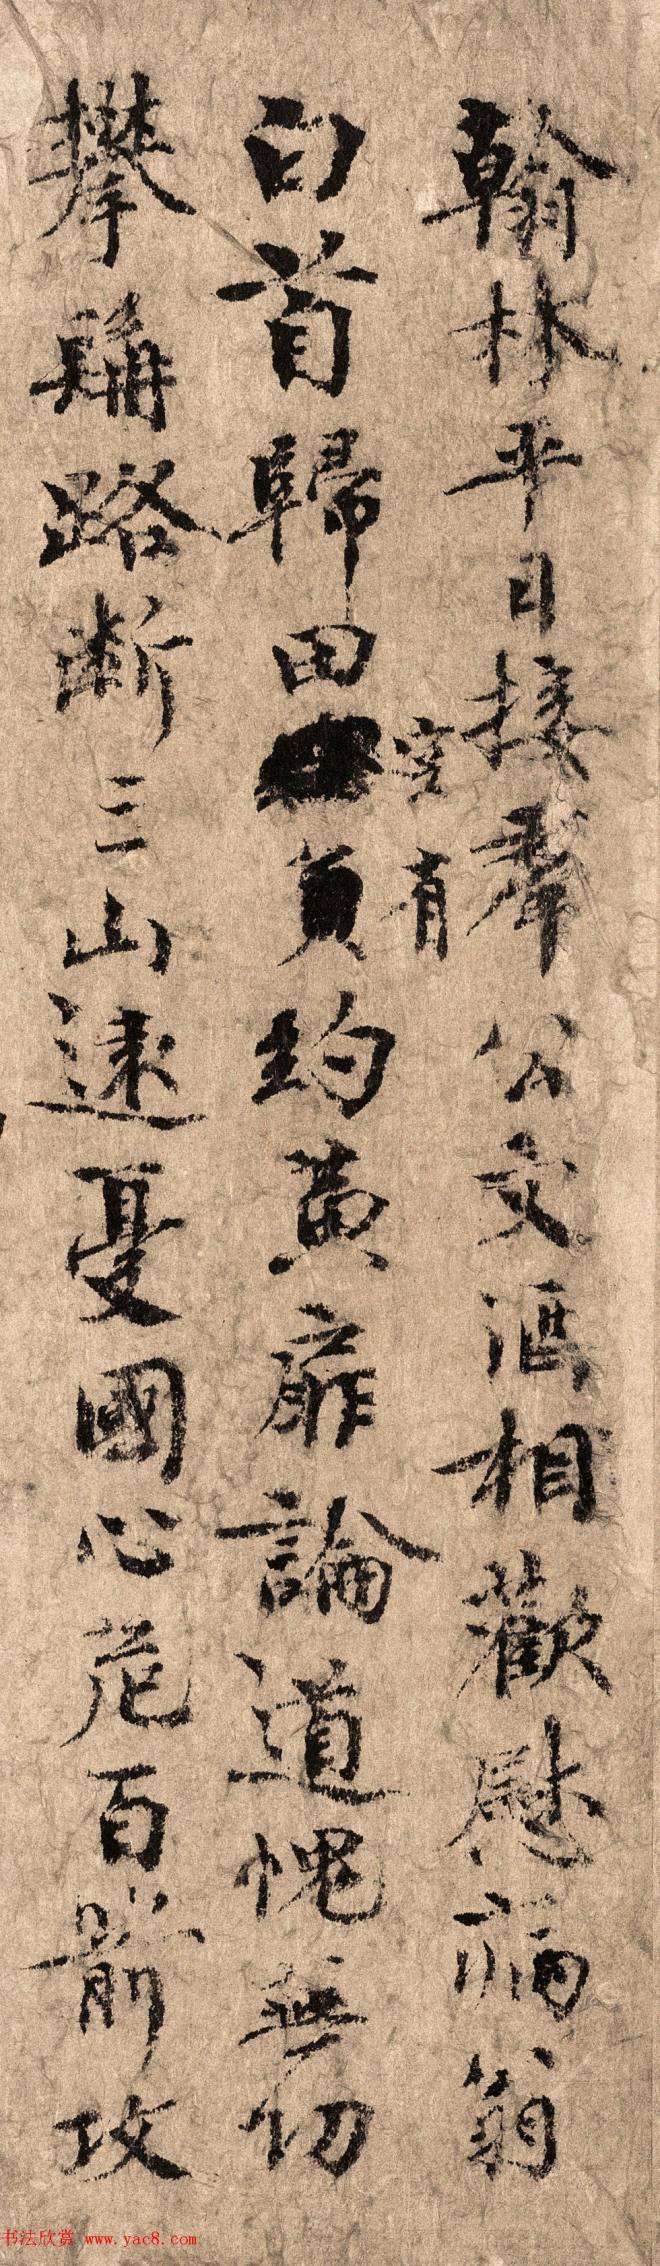 翰林平日接羣公文酒相歡慰病翁
空有
白首歸田負約黃扉論道愧無功
攀髯路斷三山遠憂國心危百箭攻
书法欣赏 www.yac8.com